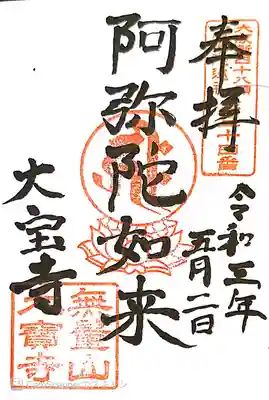 奉拝
令和三年
五月二日
阿弥陀如来
大宝寺
無量山
大寶寺